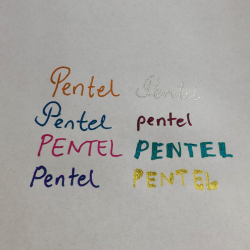 Pentel Pentel
Pentel pentel
PENTEL PENTEL
Pentel PENTEL